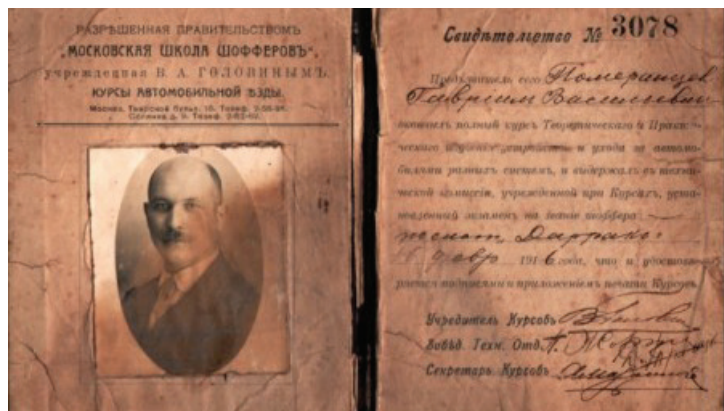 РАЗРѢШЕННАЯ ПРАВИТЕЛЬСТВОМЪ
„МОСКОВСКАЯ ШКОЛА ШОФФЕРОВЪ“,
учрежденная В. А. ГОЛОВИНЫМЪ.
КУРСЫ АВТОМОБИЛЬНОЙ ѢЗДЫ.
Москва, Тверской бульв. 10. Телеф.
д. 9. Телеф.
Свидѣтельство № 3078
Предъявитель сего Померанцев
Гавріилъ Васильевич
окончилъ полный курсъ Теоретическаго и Практи-
ческаго изученія устройства и ухода за автомо-
билями разныхъ системъ, и выдержалъ въ техни-
ческой комиссіи, учрежденной при Курсахъ, уста-
новленный экзаменъ на званіе шоффера
Даррак
1916 года, что и удостовѣ-
ряется подписями и приложеніемъ печати Курсовъ.
Учредитель Курсовъ
Завѣд. Техн. Отд.
Секретарь Курсовъ